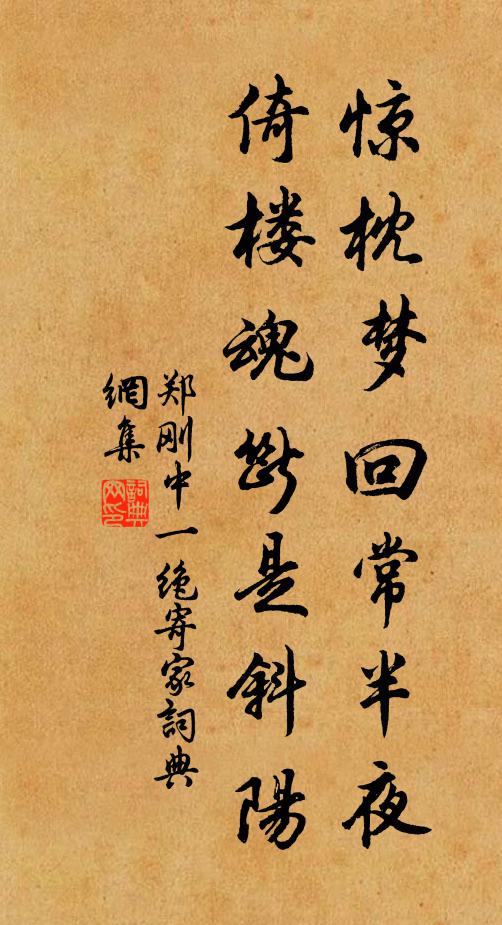 惊枕梦回常半夜
倚楼魂断是斜陽
郑刚中一绝寄家詞典
網集
詞典
网印